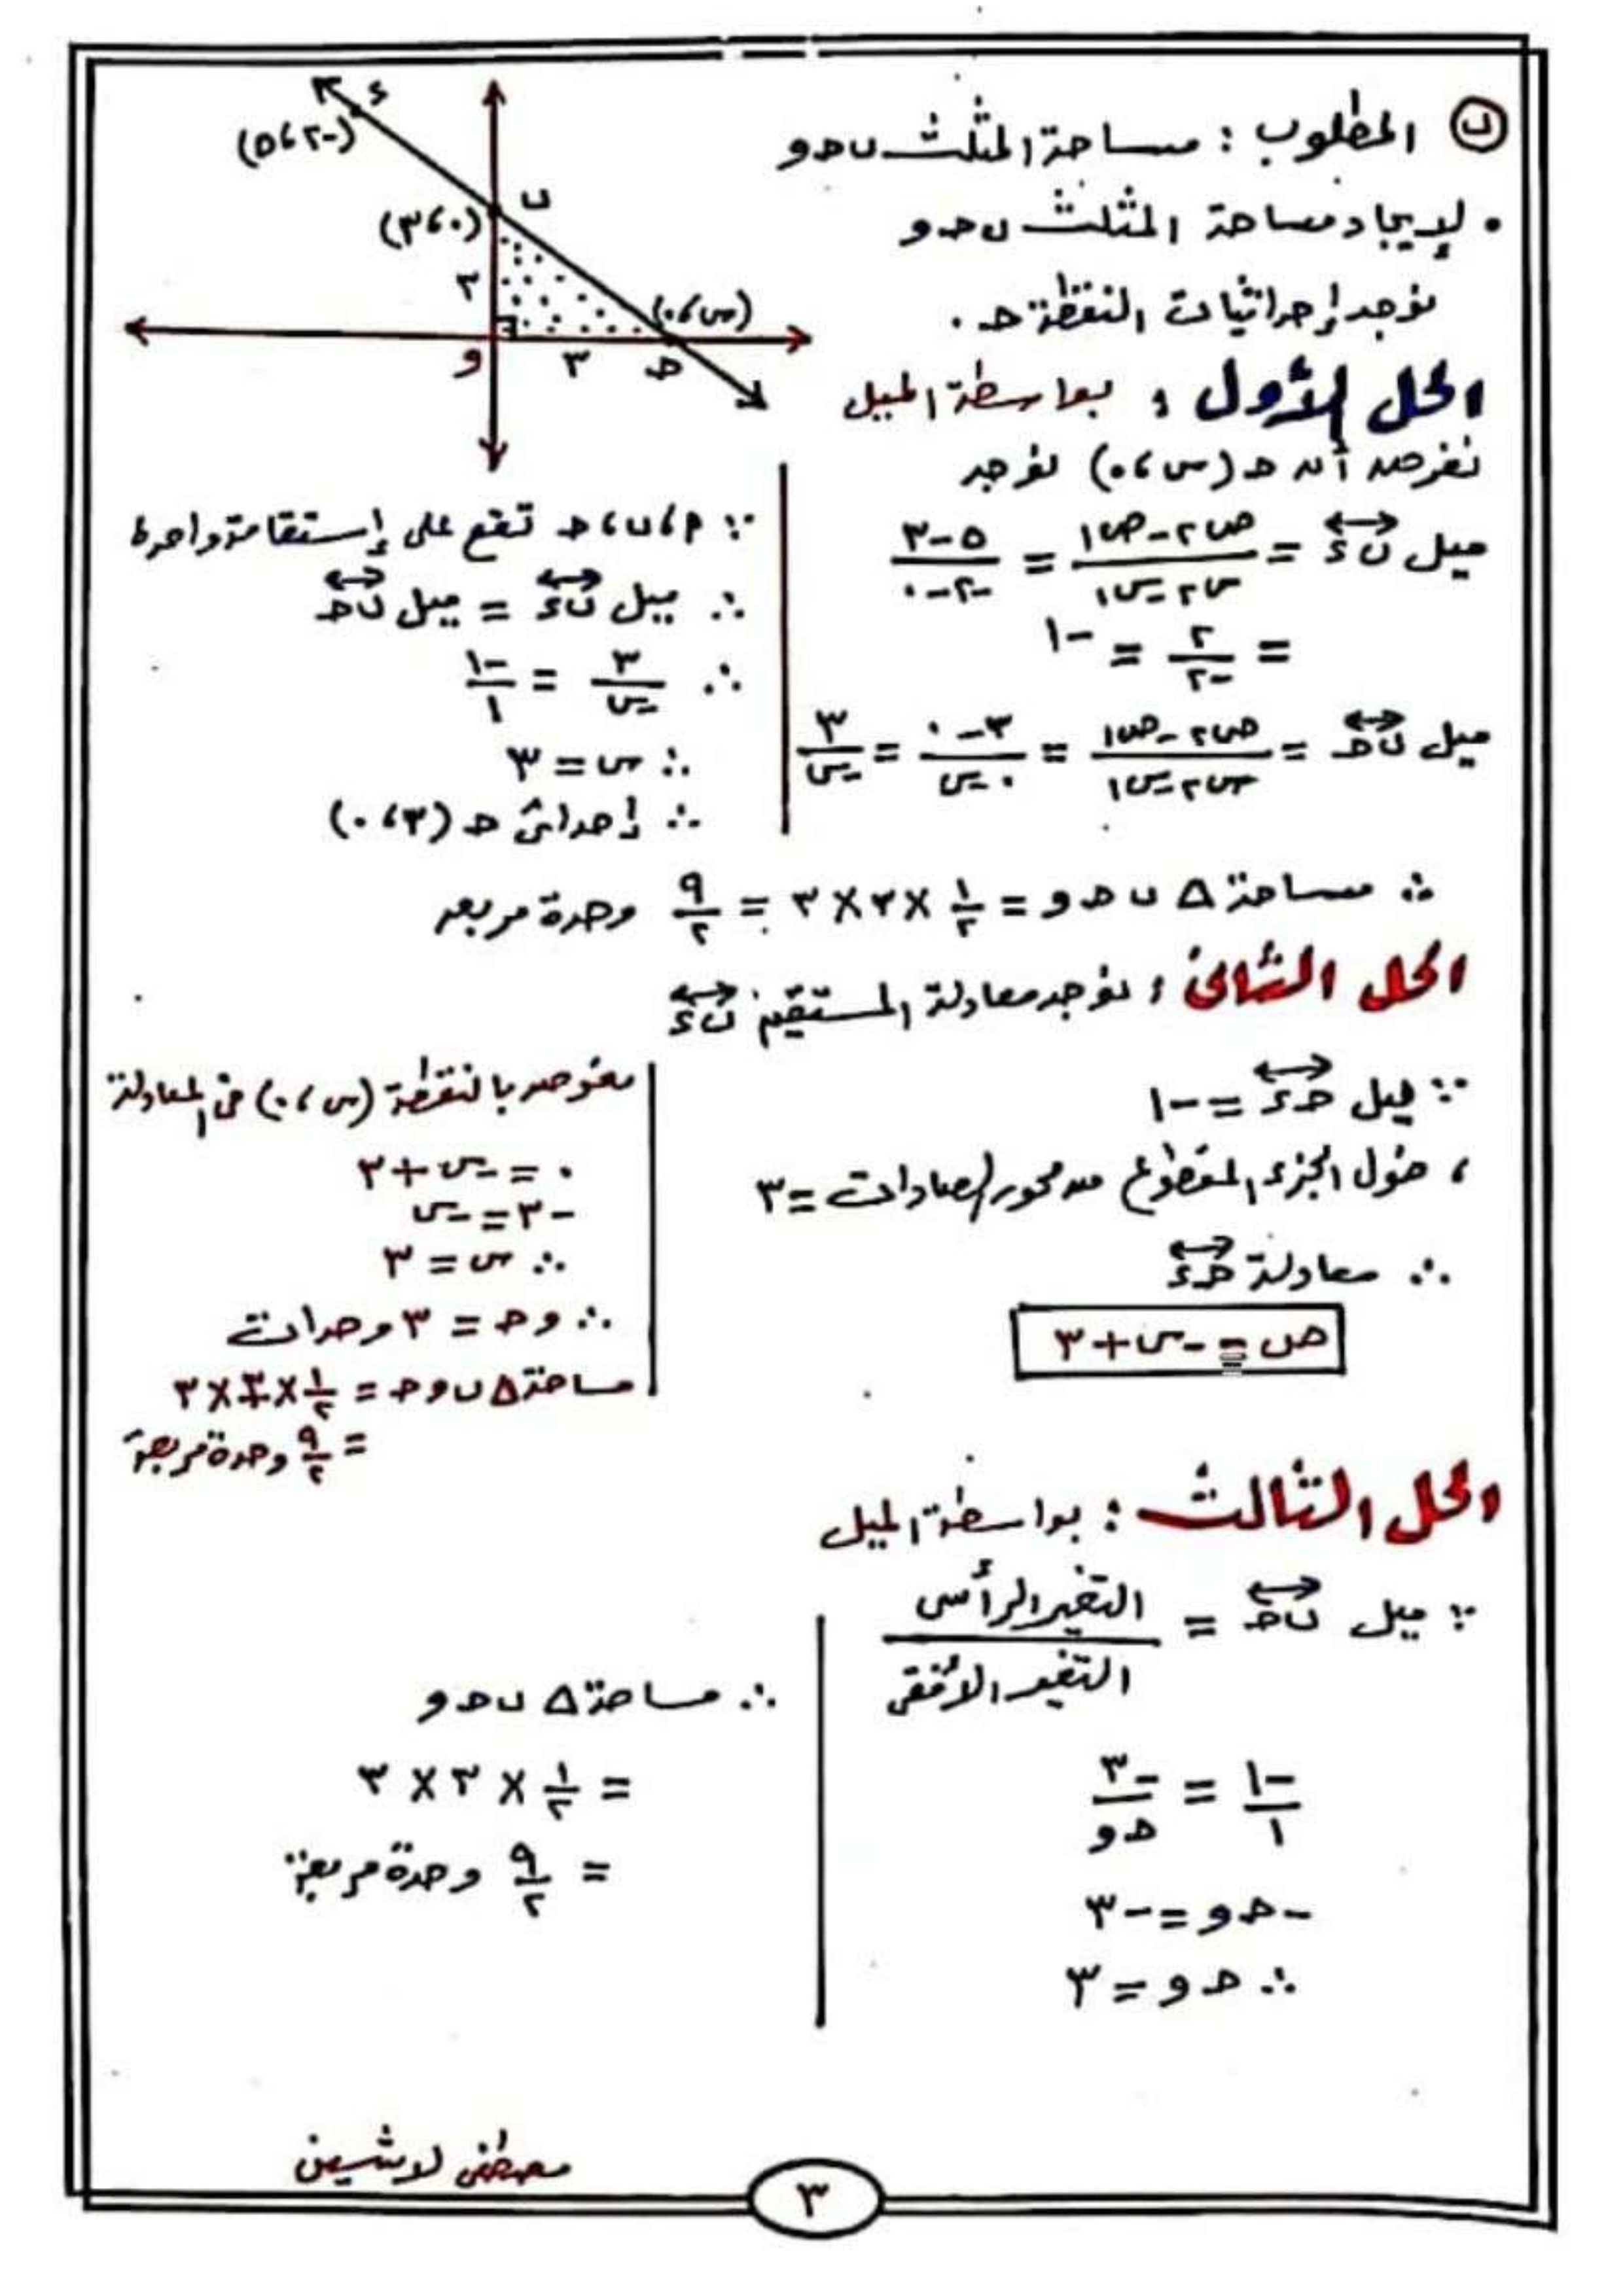 ب المطلوب : مساحة المثلث ب ح و
• لإيجاد مساحة المثلث ب ح و
نوجد إحداثيات النقطة ح .
ء
(-٢ ، ٥)
ب
(٠ ، ٣)
٣
(س ، ٠)
و
٣
ح
الحل الأول : بواسطة الميل
نفرض أن ح (س ، ٠) نوجد
ميل ب ء = ص٢ - ص١ / س٢ - س١ = ٥ - ٣ / -٢ - ٠
= ٢ / -٢ = -١
ميل ب ح = ص٢ - ص١ / س٢ - س١ = ٣ - ٠ / ٠ - س = ٣ / -س
∵ ء ، ب ، ح تقع على إستقامة واحدة
∴ ميل ب ء = ميل ب ح
∴ ٣ / -س = -١ / ١
∴ س = ٣
∴ إحداثى ح (٣ ، ٠)
∴ مساحة Δ ب ح و = ١/٢ × ٣ × ٣ = ٩/٢ وحدة مربعه
الحل الثانى : نوجد معادلة المستقيم ب ء
∵ ميل ح ء = -١
، طول الجزء المقطوع من محور الصادات = ٣
∴ معادلة ح ء
ص = -س + ٣
نعوض بالنقطة (س ، ٠) فى المعادلة
٠ = -س + ٣
-٣ = -س
∴ س = ٣
∴ و ح = ٣ وحدات
مساحة Δ ب و ح = ١/٢ × ٣ × ٣
= ٩/٢ وحدة مربعة
الحل الثالث : بواسطة الميل
∵ ميل ب ح = التغير الرأسى / التغير الأفقى
-١ / ١ = -٣ / ح و
-ح و = -٣
∴ ح و = ٣
∴ مساحة Δ ب ح و
= ١/٢ × ٣ × ٣
= ٩/٢ وحدة مربعة
مصطفى لاشين
٣